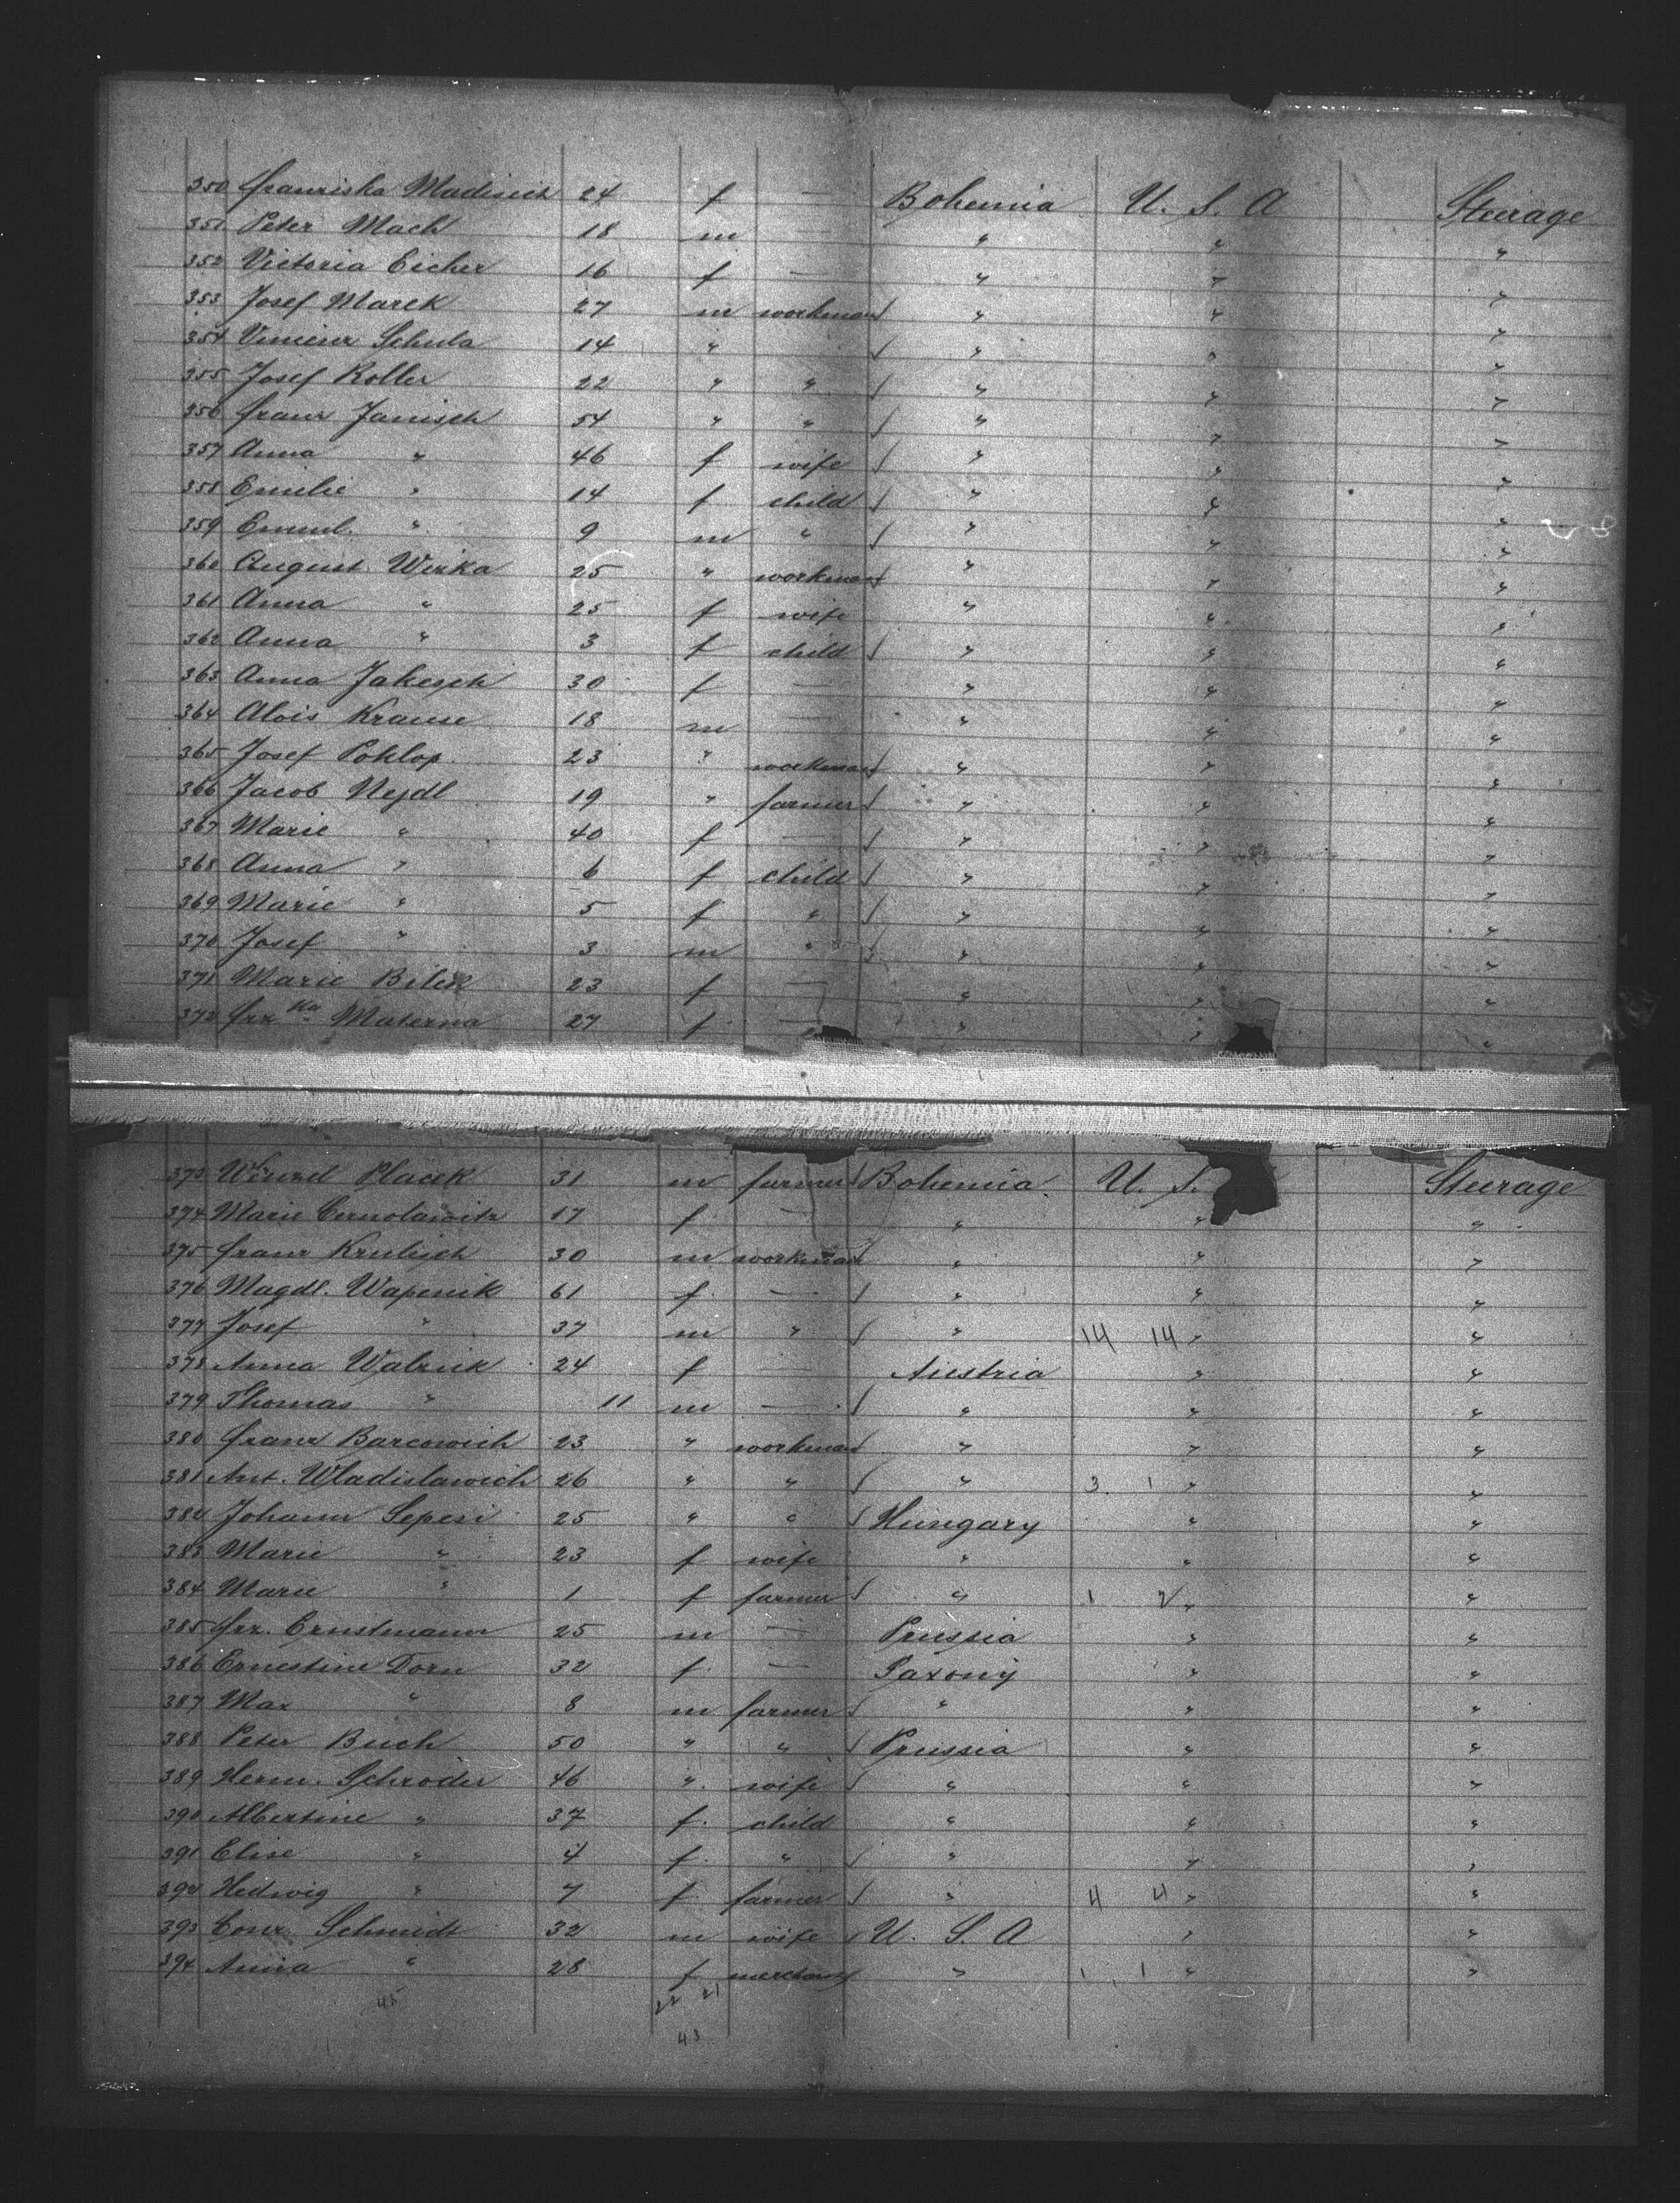 350 Franziska 24 f — Bohemia U. S. A Steerage
351 Peter Mach 18 m " " "
352 Victoria Eicher 16 f — " " "
353 Josef Marek 27 m workman " " "
354 Schula 14 " " " "
355 Josef Koller 22 " " " " "
356 Franz Janisch 54 " " " " "
357 Anna " 46 f wife " " "
358 Emilie " 14 f child " " "
359 " 9 m " " " "
360 August Wirka 25 " workman " " "
361 Anna " 25 f wife " " "
362 Anna " 3 f child " " "
363 Anna Jakesch 30 f — " " "
364 Alois Krause 18 m — " " "
365 Josef Poklop 23 " workman " " "
366 Jacob Nejdl 19 " farmer " " "
367 Marie " 40 f — " " "
368 Anna " 6 f child " " "
369 Marie " 5 f " " " "
370 Josef " 3 m " " " "
371 Marie Bilek 23 f — " " "
372 Frz ka Materna 27 f — " " "
373 Wenzel Placek 31 m farmer Bohemia U. S. Steerage
374 Marie Cernolawitz 17 f — " " "
375 Franz Krulisch 30 m workman " " "
376 Magdl. Wapenik 61 f — " " "
377 Josef " 37 m " " 14 14 " "
378 Anna Walznik 24 f — Austria " "
379 Thomas " 11 m — " " "
380 Franz Barcowich 23 " workman " " "
381 Ant. Wladislawich 26 " " " 3 1 " "
382 Johann Sepesi 25 " " Hungary " "
383 Marie " 23 f wife " " "
384 Marie " 1 f farmer " 1 2 " "
385 Frz. Ernstmann 25 m — Prussia " "
386 Ernestine Dorn 32 f — Saxony " "
387 Max " 8 m farmer " " "
388 Peter Buch 50 " " Prussia " "
389 Herm. Schröder 46 " wife " " "
390 Albertine " 37 f child " " "
391 Elise " 4 f " " " "
392 Hedwig " 7 f farmer " 4 4 " "
393 Conr. Schmidt 32 m wife U. S. A " "
394 Anna " 28 f merchant " 1 1 " "
45 22 21
43